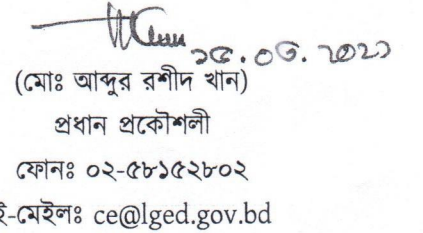 (মোঃ আব্দুর রশীদ খান)
প্রধান প্রকৌশলী
ফোনঃ ০২-৫৮১৫২৮০২
ই-মেইলঃ ce@lged.gov.bd